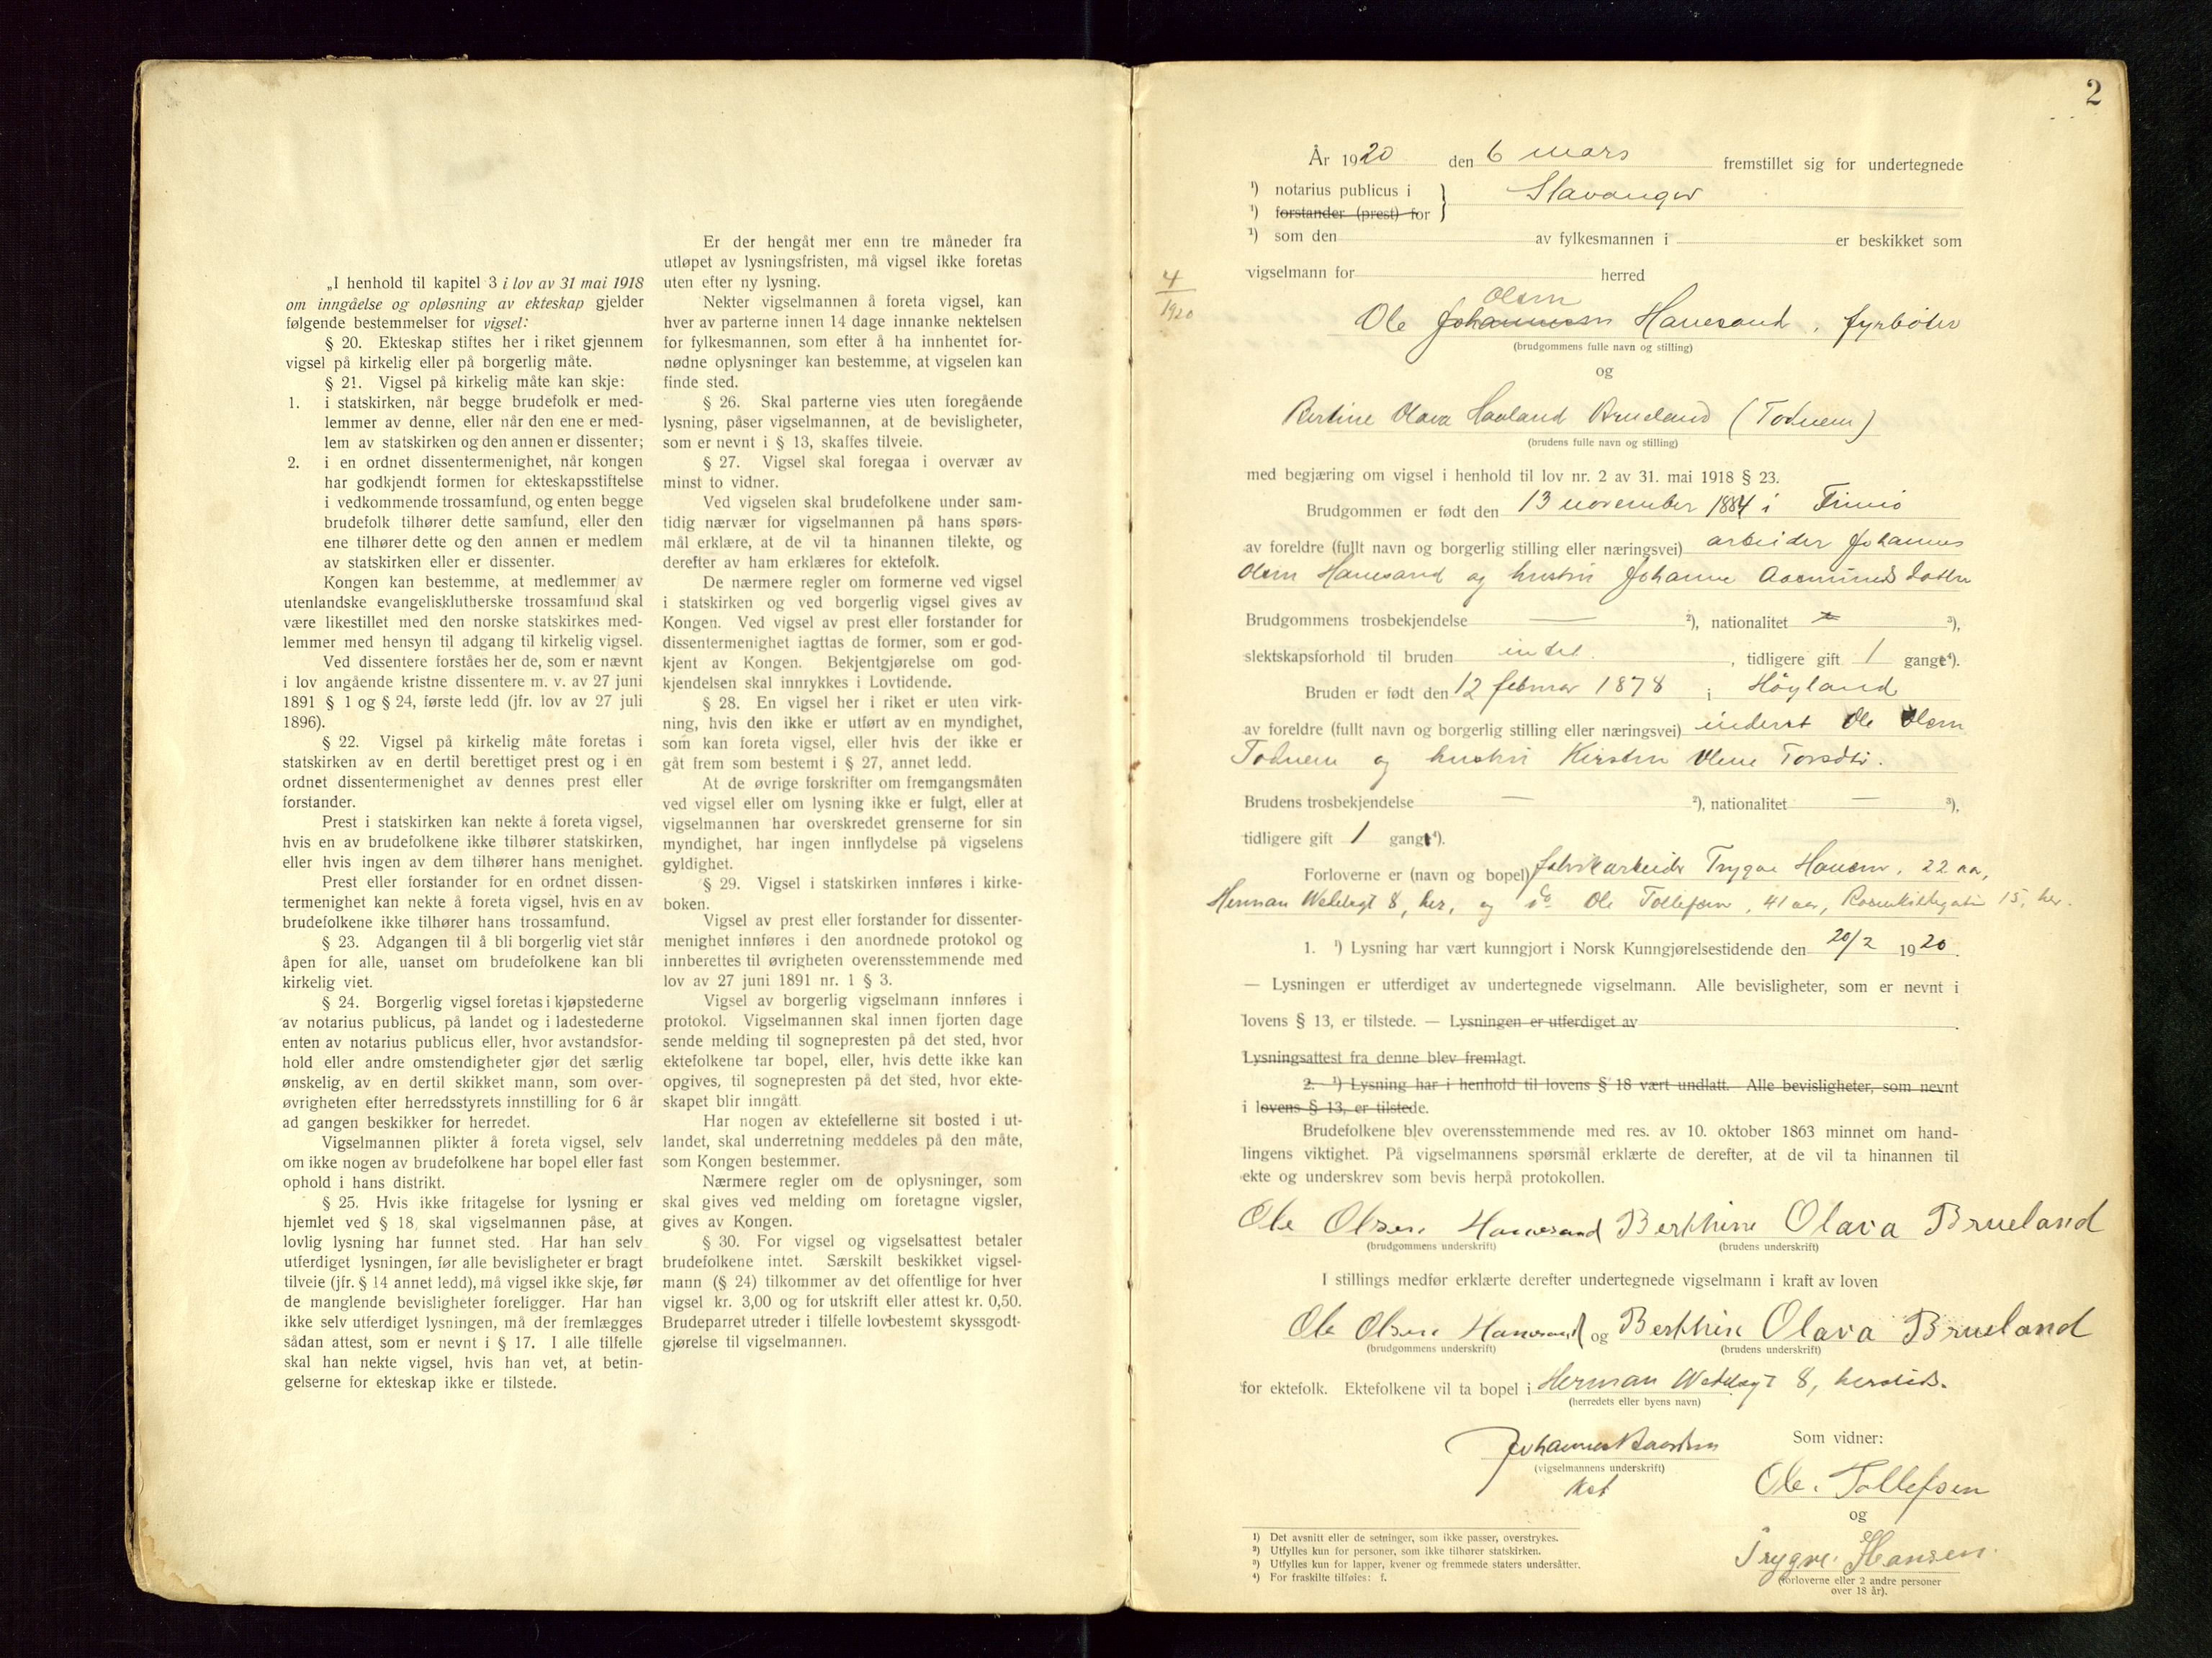 „I henhold til kapitel 3 i lov av 31 mai 1918
om inngåelse og opløsning av ekteskap gjelder
følgende bestemmelser for vigsel:
§ 20. Ekteskap stiftes her i riket gjennem
vigsel på kirkelig eller på borgerlig måte.
§ 21. Vigsel på kirkelig måte kan skje:
1. i statskirken, når begge brudefolk er med-
lemmer av denne, eller når den ene er med-
lem av statskirken og den annen er dissenter;
2. i en ordnet dissentermenighet, når kongen
har godkjendt formen for ekteskapsstiftelse
i vedkommende trossamfund, og enten begge
brudefolk tilhører dette samfund, eller den
ene tilhører dette og den annen er medlem
av statskirken eller er dissenter.
Kongen kan bestemme, at medlemmer av
utenlandske evangelisklutherske trossamfund skal
være likestillet med den norske statskirkes med-
lemmer med hensyn til adgang til kirkelig vigsel.
Ved dissentere forståes her de, som er nævnt
i lov angående kristne dissentere m. v. av 27 juni
1891 § 1 og § 24, første ledd (jfr. lov av 27 juli
1896).
§ 22. Vigsel på kirkelig måte foretas i
statskirken av en dertil berettiget prest og i en
ordnet dissentermenighet av dennes prest eller
forstander.
Prest i statskirken kan nekte å foreta vigsel,
hvis en av brudefolkene ikke tilhører statskirken,
eller hvis ingen av dem tilhører hans menighet.
Prest eller forstander for en ordnet dissen-
termenighet kan nekte å foreta vigsel, hvis en av
brudefolkene ikke tilhører hans trossamfund.
§ 23. Adgangen til å bli borgerlig viet står
åpen for alle, uanset om brudefolkene kan bli
kirkelig viet.
§ 24. Borgerlig vigsel foretas i kjøpstederne
av notarius publicus, på landet og i ladestederne
enten av notarius publicus eller, hvor avstandsfor-
hold eller andre omstendigheter gjør det særlig
ønskelig, av en dertil skikket mann, som over-
øvrigheten efter herredsstyrets innstilling for 6 år
ad gangen beskikker for herredet.
Vigselmannen plikter å foreta vigsel, selv
om ikke nogen av brudefolkene har bopel eller fast
ophold i hans distrikt.
§ 25. Hvis ikke fritagelse for lysning er
hjemlet ved § 18, skal vigselmannen påse, at
lovlig lysning har funnet sted. Har han selv
utferdiget lysningen, før alle bevisligheter er bragt
tilveie (jfr. § 14 annet ledd), må vigsel ikke skje, før
de manglende bevisligheter foreligger. Har han
ikke selv utferdiget lysningen, må der fremlægges
sådan attest, som er nevnt i § 17. I alle tilfelle
skal han nekte vigsel, hvis han vet, at betin-
gelserne for ekteskap ikke er tilstede.
Er der hengåt mer enn tre måneder fra
utløpet av lysningsfristen, må vigsel ikke foretas
uten efter ny lysning.
Nekter vigselmannen å foreta vigsel, kan
hver av parterne innen 14 dage innanke nektelsen
for fylkesmannen, som efter å ha innhentet for-
nødne oplysninger kan bestemme, at vigselen kan
finde sted.
§ 26. Skal parterne vies uten foregående
lysning, påser vigselmannen, at de bevisligheter,
som er nevnt i § 13, skaffes tilveie.
§ 27. Vigsel skal foregaa i overvær av
minst to vidner.
Ved vigselen skal brudefolkene under sam-
tidig nærvær for vigselmannen på hans spørs-
mål erklære, at de vil ta hinannen tilekte, og
derefter av ham erklæres for ektefolk.
De nærmere regler om formerne ved vigsel
i statskirken og ved borgerlig vigsel gives av
Kongen. Ved vigsel av prest eller forstander for
dissentermenighet iagttas de former, som er god-
kjent av Kongen. Bekjentgjørelse om god-
kjendelsen skal innrykkes i Lovtidende.
§ 28. En vigsel her i riket er uten virk-
ning, hvis den ikke er utført av en myndighet,
som kan foreta vigsel, eller hvis der ikke er
gåt frem som bestemt i § 27, annet ledd.
At de øvrige forskrifter om fremgangsmåten
ved vigsel eller om lysning ikke er fulgt, eller at
vigselmannen har overskredet grenserne for sin
myndighet, har ingen innflydelse på vigselens
gyldighet.
§ 29. Vigsel i statskirken innføres i kirke-
boken.
Vigsel av prest eller forstander for dissenter-
menighet innføres i den anordnede protokol og
innberettes til øvrigheten overensstemmende med
lov av 27 juni 1891 nr. 1 § 3.
Vigsel av borgerlig vigselmann innføres i
protokol. Vigselmannen skal innen fjorten dage
sende melding til sognepresten på det sted, hvor
ektefolkene tar bopel, eller, hvis dette ikke kan
opgives, til sognepresten på det sted, hvor ekte-
skapet blir inngått.
Har nogen av ektefellerne sit bosted i ut-
landet, skal underretning meddeles på den måte,
som Kongen bestemmer.
Nærmere regler om de oplysninger, som
skal gives ved melding om foretagne vigsler,
gives av Kongen.
§ 30. For vigsel og vigselsattest betaler
brudefolkene intet. Særskilt beskikket vigsel-
mann (§ 24) tilkommer av det offentlige for hver
vigsel kr. 3,00 og for utskrift eller attest kr. 0,50.
Brudeparret utreder i tilfelle lovbestemt skyssgodt-
gjørelse til vigselmannen.
2
År 1920 den 6 mars fremstillet sig for undertegnede
¹) notarius publicus i } Stavanger
¹) forstander (prest) for
¹) som den av fylkesmannen i er beskikket som
vigselmann for herred
4
1920
Olsen
Ole Johannesen Hanesand, fyrbøter
(brudgommens fulle navn og stilling)
og
Bertine Olava Haaland Brueland (Todnem)
(brudens fulle navn og stilling)
med begjæring om vigsel i henhold til lov nr. 2 av 31. mai 1918 § 23.
Brudgommen er født den 13 november 1884 i Finnø
av foreldre (fullt navn og borgerlig stilling eller næringsvei) arbeider Johannes
Olsen Hanesand og hustru Johanne Aasmundsdatter
Brudgommens trosbekjendelse — ²), nationalitet ³),
slektskapsforhold til bruden intet. , tidligere gift 1 gange⁴).
Bruden er født den 12 februar 1878 i Høyland
av foreldre (fullt navn og borgerlig stilling eller næringsvei) inderst Ole Olsen
Todnem og hustru Kirsten Olene Torsdtr.
Brudens trosbekjendelse — ²), nationalitet — ³),
tidligere gift 1 gang⁴).
Forloverne er (navn og bopel) fabrikarbeider Trygve Hansen, 22 aar,
Herman Wedelsgt 8, her, og do Ole Tollefsen, 41 aar, Rosenkildegaten 15, her.
1. ¹) Lysning har vært kunngjort i Norsk Kunngjørelsestidende den 20/2 1920.
— Lysningen er utferdiget av undertegnede vigselmann. Alle bevisligheter, som er nevnt i
lovens § 13, er tilstede. — Lysningen er utferdiget av
Lysningsattest fra denne blev fremlagt.
2. ¹) Lysning har i henhold til lovens § 18 vært undlatt. Alle bevisligheter, som nevnt
i lovens § 13, er tilstede.
Brudefolkene blev overensstemmende med res. av 10. oktober 1863 minnet om hand-
lingens viktighet. På vigselmannens spørsmål erklærte de derefter, at de vil ta hinannen til
ekte og underskrev som bevis herpå protokollen.
Ole Olsen Hanesand Berthine Olava Brueland
(brudgommens underskrift) (brudens underskrift)
I stillings medfør erklærte derefter undertegnede vigselmann i kraft av loven
Ole Olsen Hanesand og Berthine Olava Brueland
(brudgommens underskrift) (brudens underskrift)
for ektefolk. Ektefolkene vil ta bopel i Herman Wedelsgt 8, hersteds.
(herredets eller byens navn)
Johannes
(vigselmannens underskrift)
Som vidner:
Ole. Tollefsen
og
Trygve Hansen.
(forloverne eller 2 andre personer
over 18 år).
¹) Det avsnitt eller de setninger, som ikke passer, overstrykes.
²) Utfylles kun for personer, som ikke tilhører statskirken.
³) Utfylles kun for lapper, kvener og fremmede staters undersåtter.
⁴) For fraskilte tilføies: f.